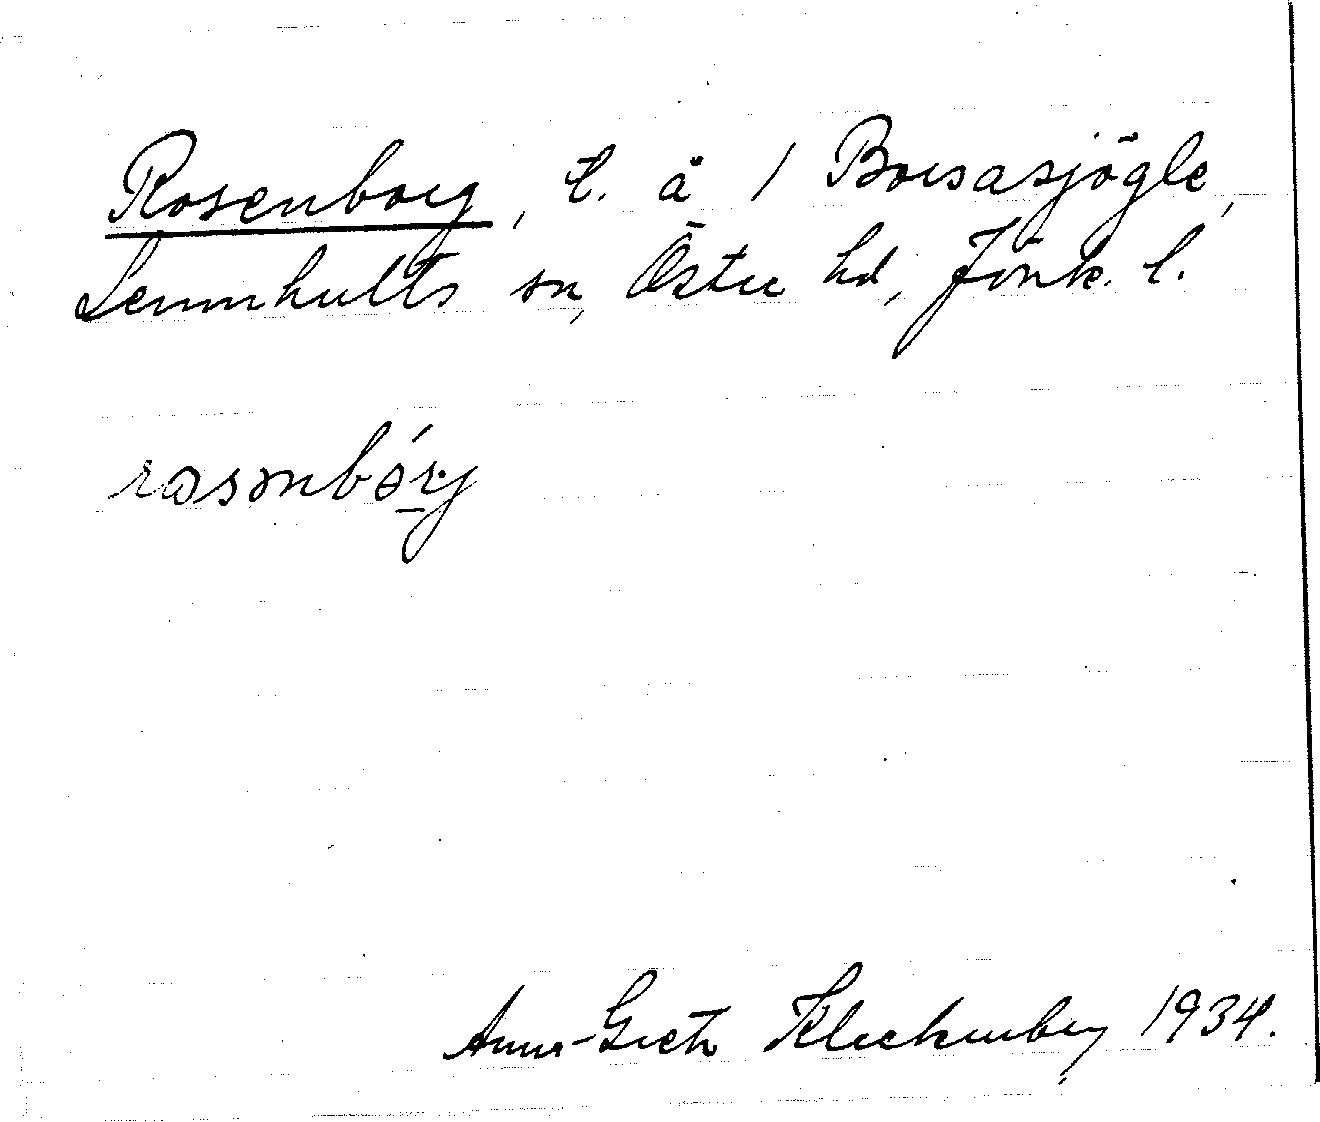 Rosenborg, t. å 1 Borsasjögle,
Lemnhults sn, Östra hd, Jönk. l.
rosənbórj
Anna-Greta Kleckenberg 1934.